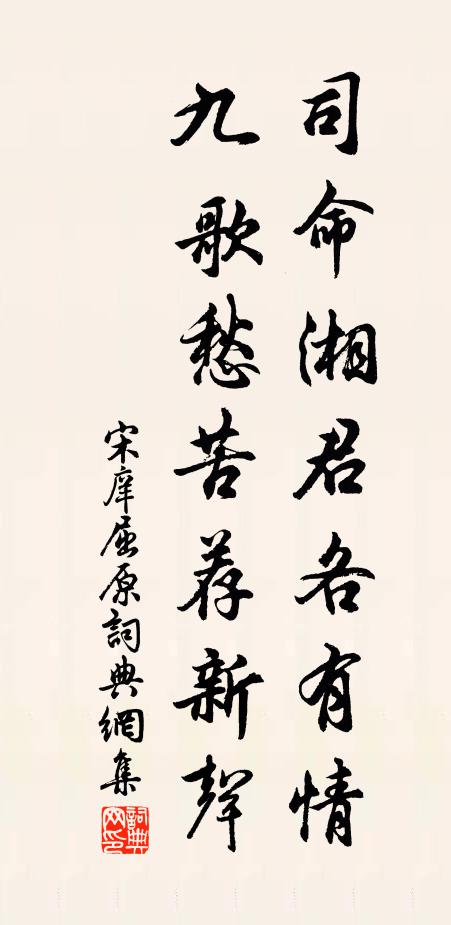 司命湘君各有情
九歌愁苦荐新聲
宋庠屈原詞典網集
詞典网印